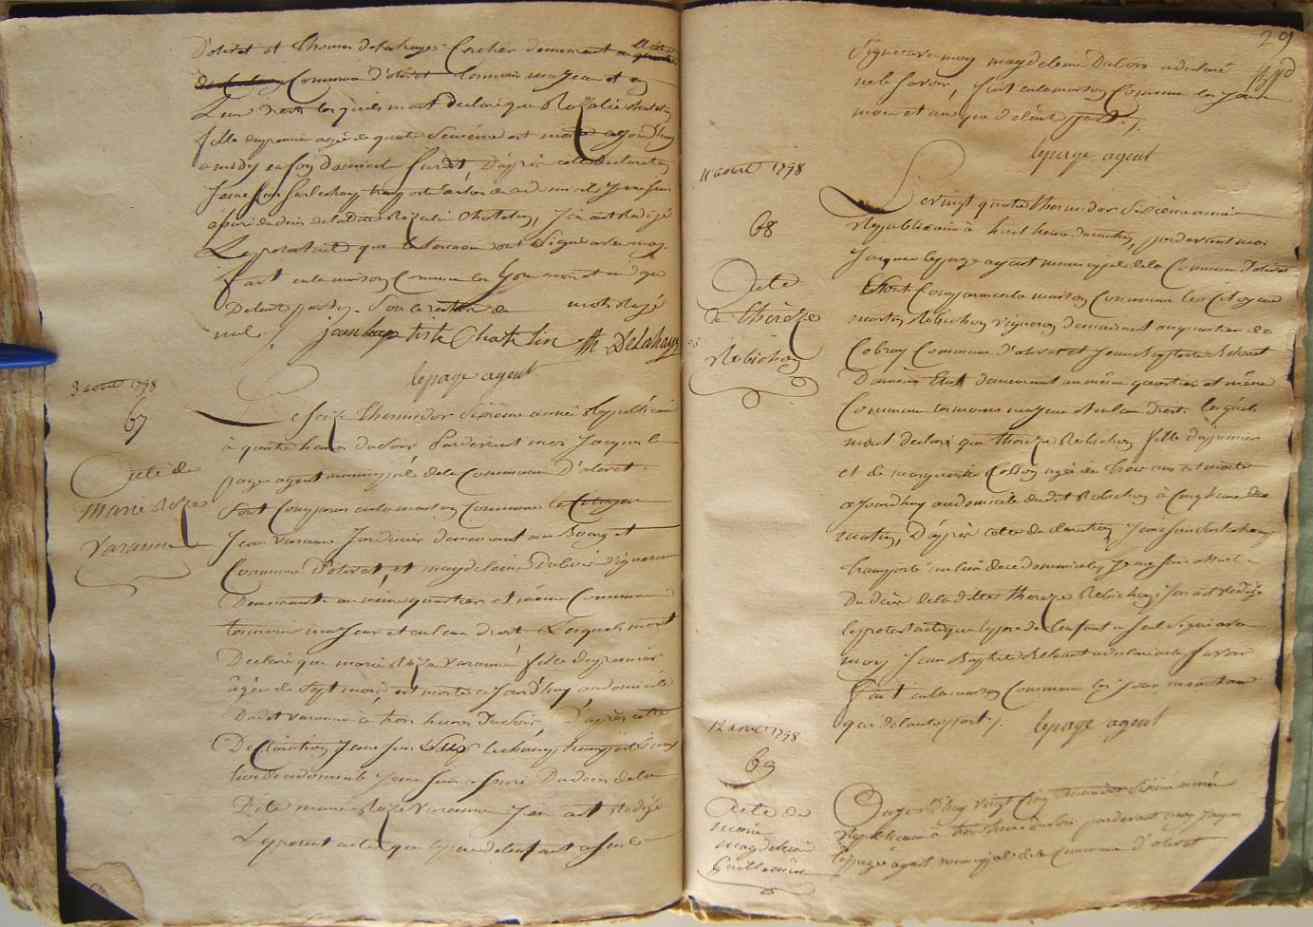 D'olivet et Thomas delahaye Cocher demeurant
Commune d'olivet tous mayeur et en
Leur droits lesquels m'ont declaré que Rozalie Chatelin
fille du premier agée de quatre Semaine est morte aujourd'huy
a midy en son domicile Dapres cette declaration
Je me suis Sur le champ transporté au lieu de ce domicile Je me suis
assuré du décès de la Ditte Rozalie Chatelin, J'en ait Redigé
Le present acte que les temoins ont Signé avec moy
fait en la maison Commune les Jour mois et an que
Dessus mots Rayé
nul. jean baptiste Chatelin th Delahaye
lepage agent
3 aout 1798
67
Acte de
Marie Roze
Varanne
Le Seize Thermidor Sixieme année Republicaine
à quatre heures du Soir, Pardevant moi Jacques le
page agent municipal de la Commune D'olivet
Sont Comparus en la maison Commune le Citoyen
Jean Varanne Jardinier demeurant au Bourg et
Commune D'olivet, et magdeleine Dubois vigneronne
Demeurante au même quartier et même Commune
tous deux mayeur et en leur droit Lesquels m'ont
Declaré que marie Roze varanne fille du premier
âgée de Sept mois, est morte aujourd'huy au domicile
Dudit varanne à trois heures du Soir, D'après cette
Declaration Je me suis Sur le champ transporté au
lieu de ce domicile Je me suis assuré Du décès de la
Ditte marie Roze varanne J'en ait Redigé
Le present acte que le pere de l'enfant a Seul
29
Signé avec moy magdeleine Dubois a declaré
ne le savoir, fait en la maison Commune les Jour
mois et an que d'autre part.
lepage agent
11 aout 1798
68
Acte
de thérèze
Rebichon
Le vingt quatre thermidor Sixieme année
Republicaine à huit heures du matin, pardevant moi
Jacques lepage agent municipal de la Commune d'olivet
Sont Comparus en la maison Commune les Citoyens
martin Rebichon vigneron demeurant au quartier de
Cobray Commune d'olivet et Jean Baptiste
demeurant au même quartier et même
Commune tous deux mayeur et en leur droit. lesquels
m'ont declaré que thereze Rebichon fille du premier
et de marguerite agée de trois ans est morte
aujourdhuy au domicile dudit Rebichon à Cinq heures du
matin, D'après cette declaration Je me suis Sur le champ
transporté au lieu de ce domicile, Je me suis assuré
Du décès de la ditte thereze Rebichon J'en ait redigé
le present acte que le pere de l'enfant a Seul Signé avec
moy Jean Baptiste a declaré ne le savoir
fait en la maison Commune les Jour mois et an
que d'autre part. lepage agent
12 aout 1798
69
Acte de
marie
magdeleine
Guillemin
aujourd'huy vingt Cinq thermidor Sixieme année
Republicaine à trois heures du Soir pardevant moy Jacques
lepage agent municipal de la Commune d'olivet